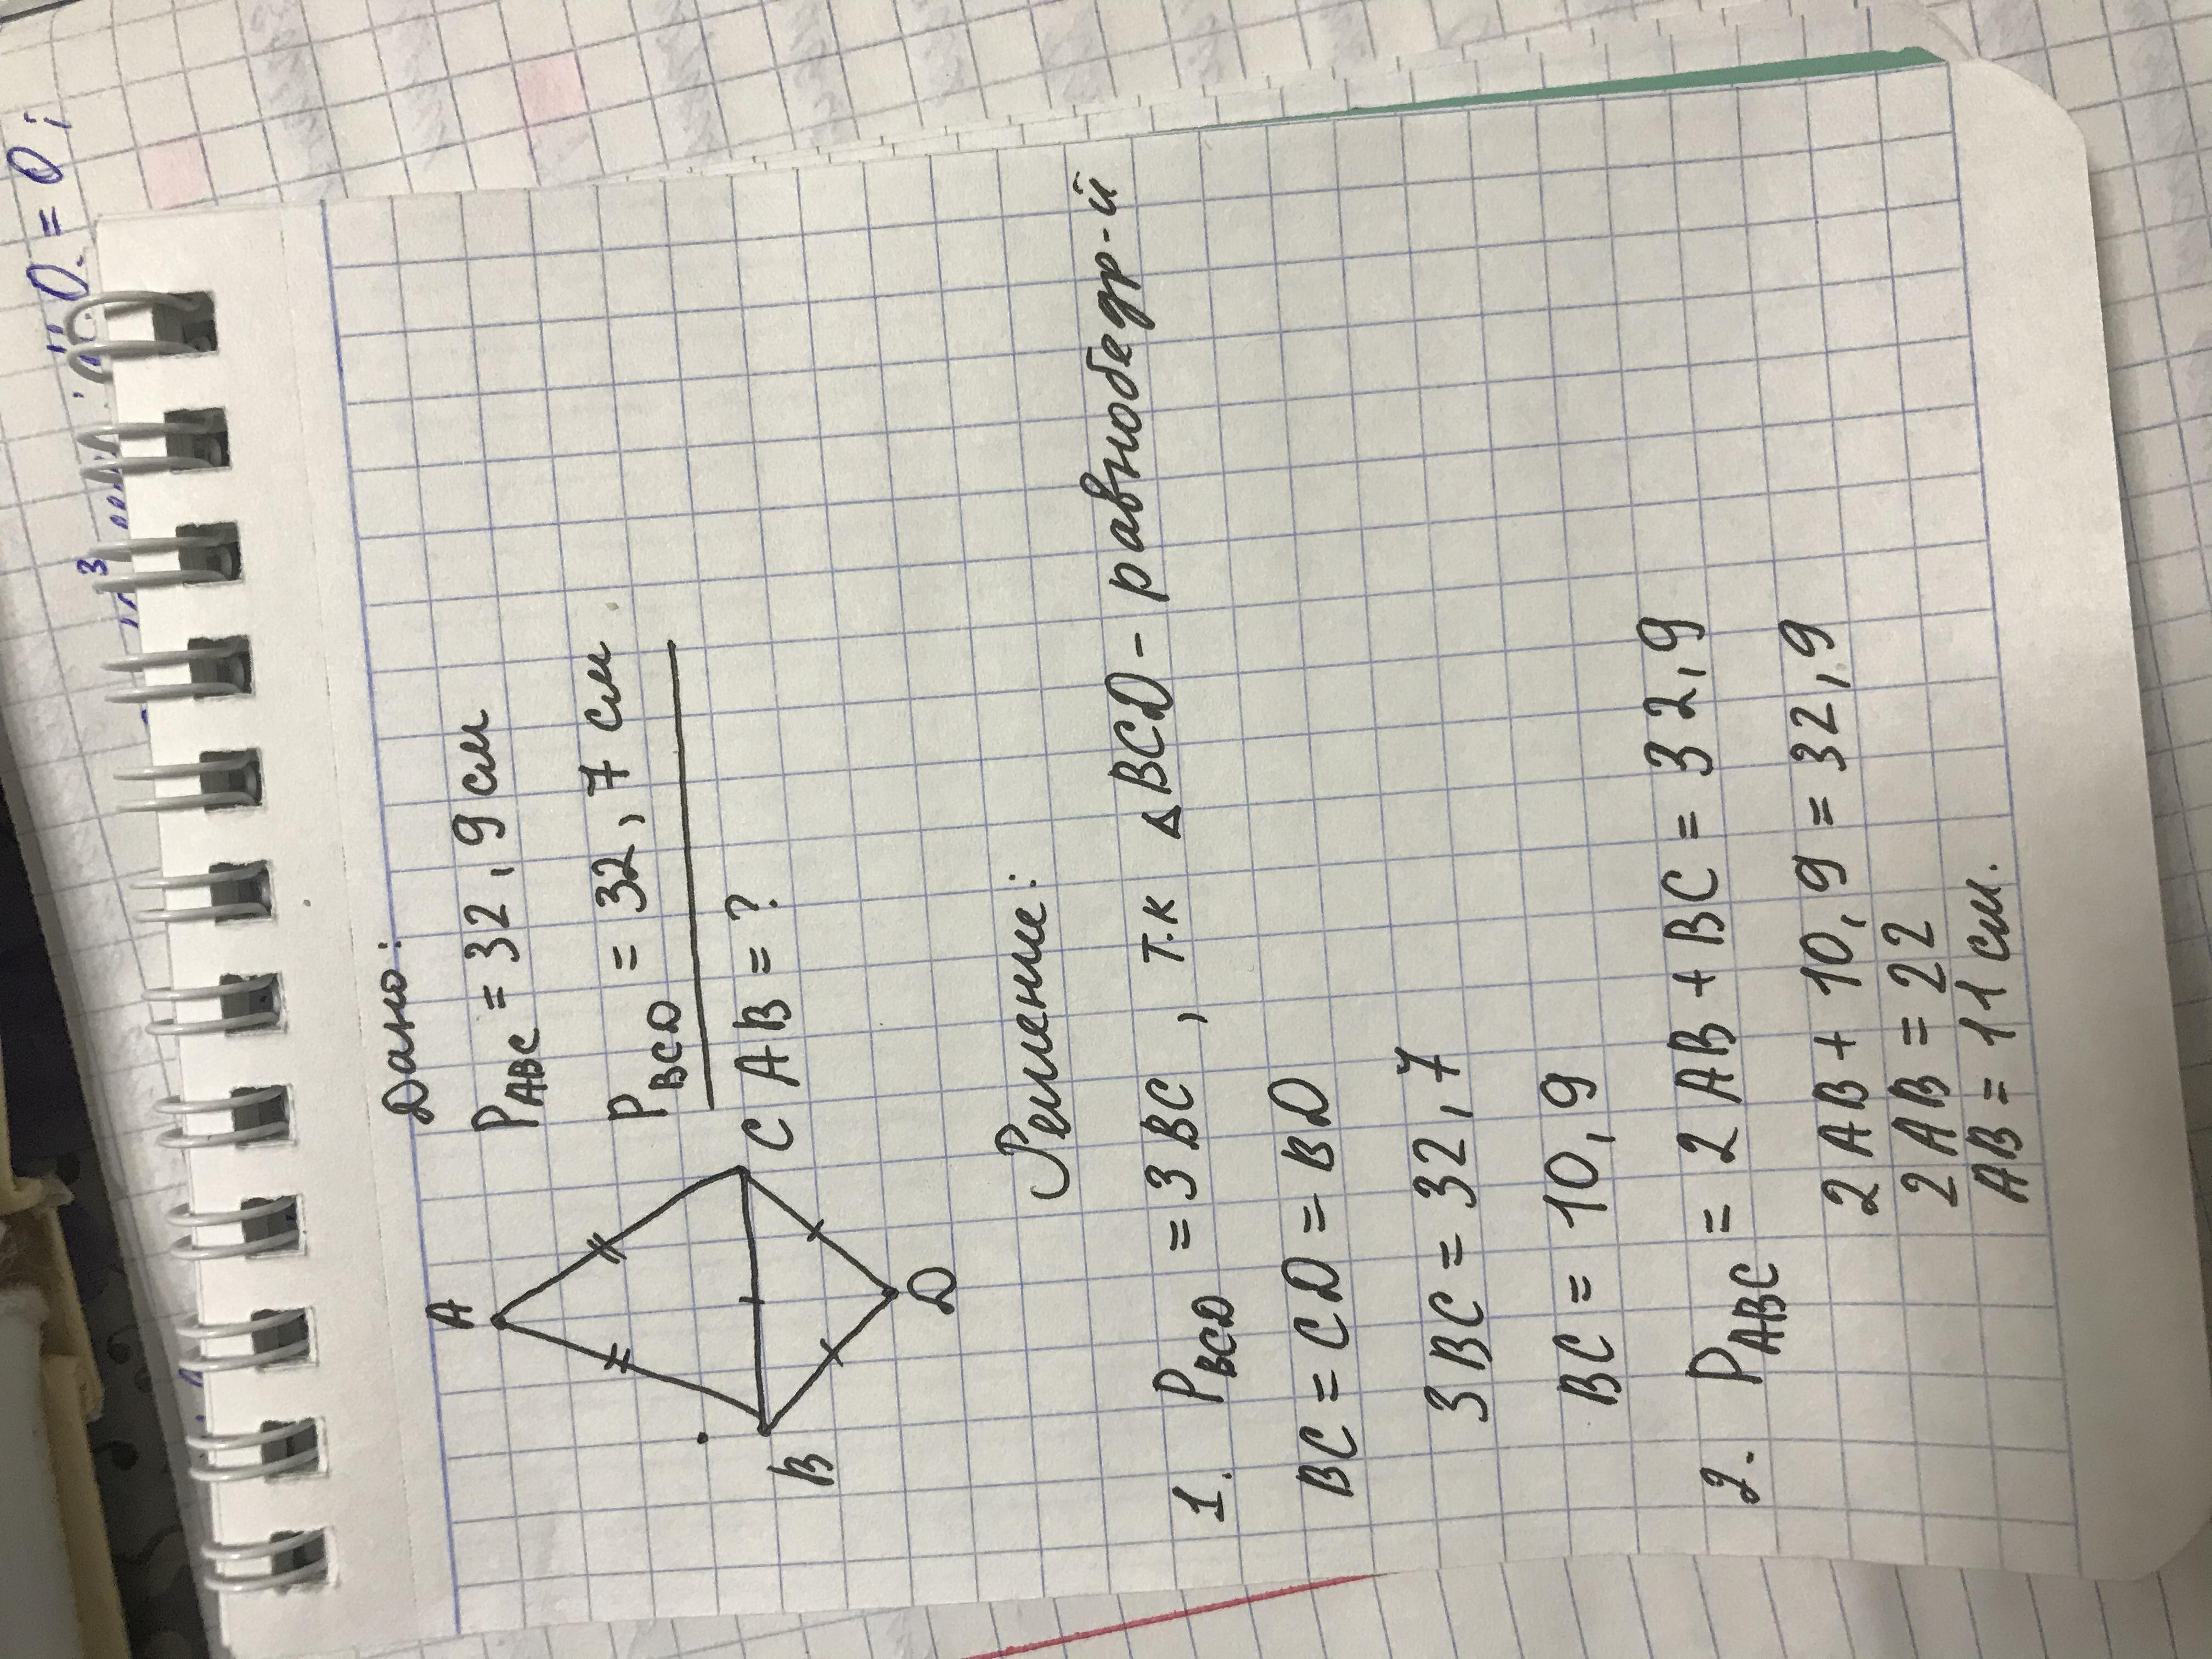 Дано:
P ABC = 32,9 см
P BCD = 32,7 см
AB = ?
A
B
C
D
Решение:
1. P BCD = 3 BC , т.к △BCD - равнобедр-й
BC = CD = BD
3 BC = 32,7
BC = 10,9
2. P ABC = 2 AB + BC = 32,9
2 AB + 10,9 = 32,9
2 AB = 22
AB = 11 см.